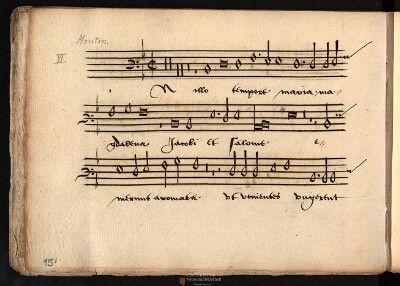 Mouton
VI
N illo tempore maria ma
gdalena Jacobi et salome e
merunt aromata ut venientes ungerent
15